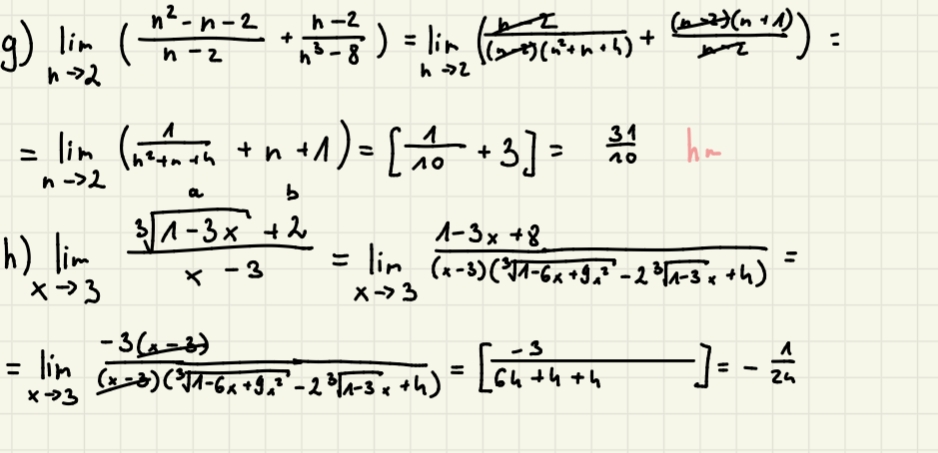 g) lim n→2 ( (n²-n-2)/(n-2) + (n-2)/(n³-8) ) = lim n→2 ( (n-2)/((n-2)(n²+n+4)) + ((n-2)(n+1))/(n-2) ) =
= lim n→2 ( 1/(n²+n+4) + n + 1 ) = [ 1/10 + 3 ] = 31/10 hm
a b
h) lim x→3 (∛(1-3x) + 2)/(x-3) = lim x→3 (1-3x+8)/((x-3)(∛(1-6x+9x²) - 2∛(1-3x) + 4)) =
= lim x→3 (-3(x-3))/((x-3)(∛(1-6x+9x²) - 2∛(1-3x) + 4)) = [ -3/(64+4+4) ] = - 1/24